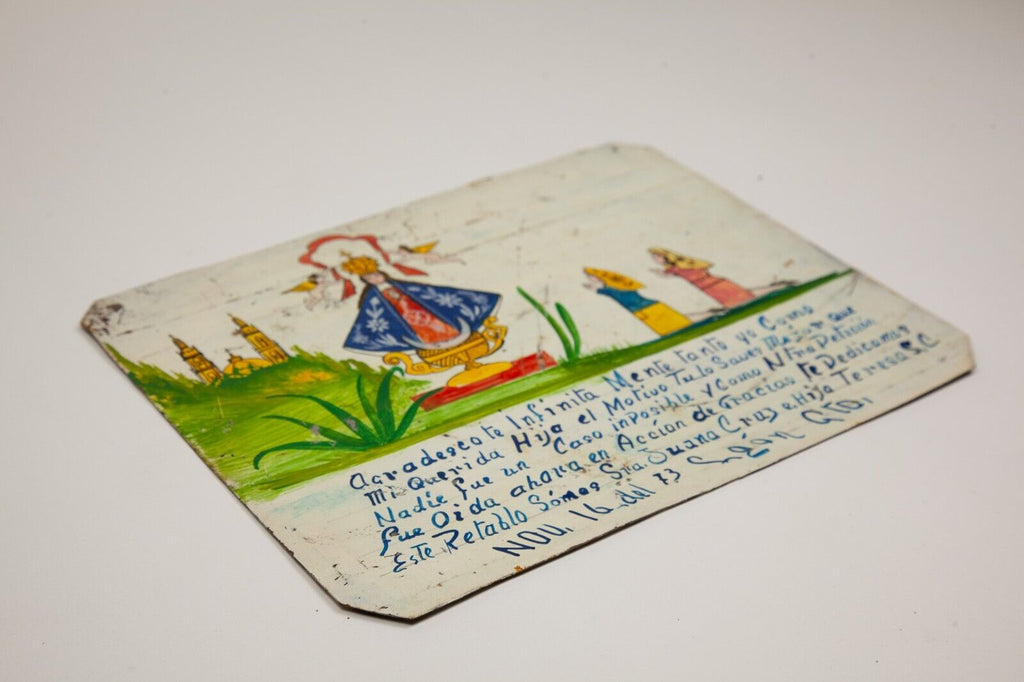 Agradesco te Infinita Mente tanto yo Como
Mi Querida Hija el Motivo Tu lo Saves Mejor que
Nadie fue un Caso inposible y Como Ntra Petición
fue Oida ahora en Acción de Gracias te Dedicamos
Este Retablo Sómos Sra. Juana Cruz e Hija Teresa S.C
NOV. 16 del 73 León Gto.